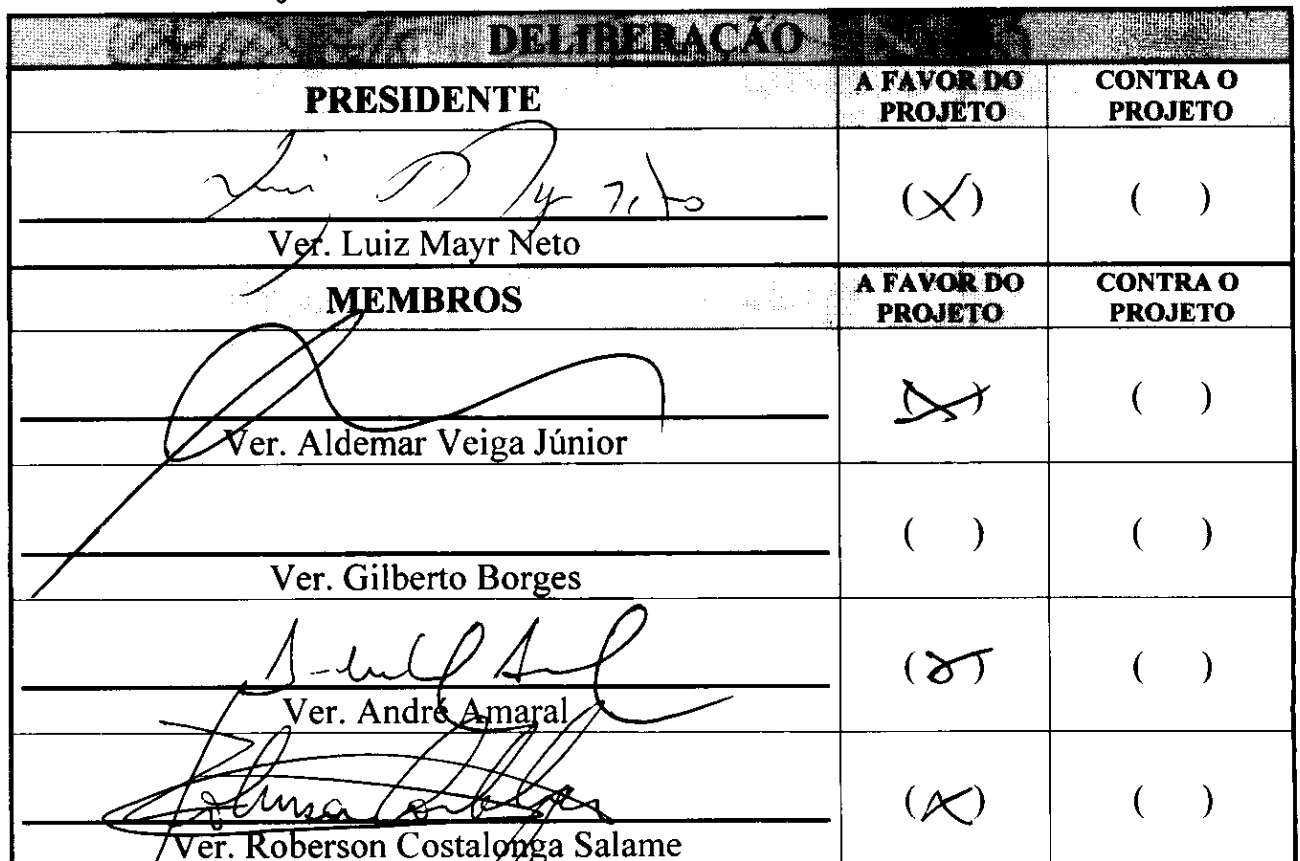 DELIBERAÇÃO
PRESIDENTE
A FAVOR DO PROJETO
CONTRA O PROJETO
(X)
( )
Ver. Luiz Mayr Neto
MEMBROS
A FAVOR DO PROJETO
CONTRA O PROJETO
(X)
( )
Ver. Aldemar Veiga Júnior
( )
( )
Ver. Gilberto Borges
(X)
( )
Ver. André Amaral
(X)
( )
Ver. Roberson Costalonga Salame